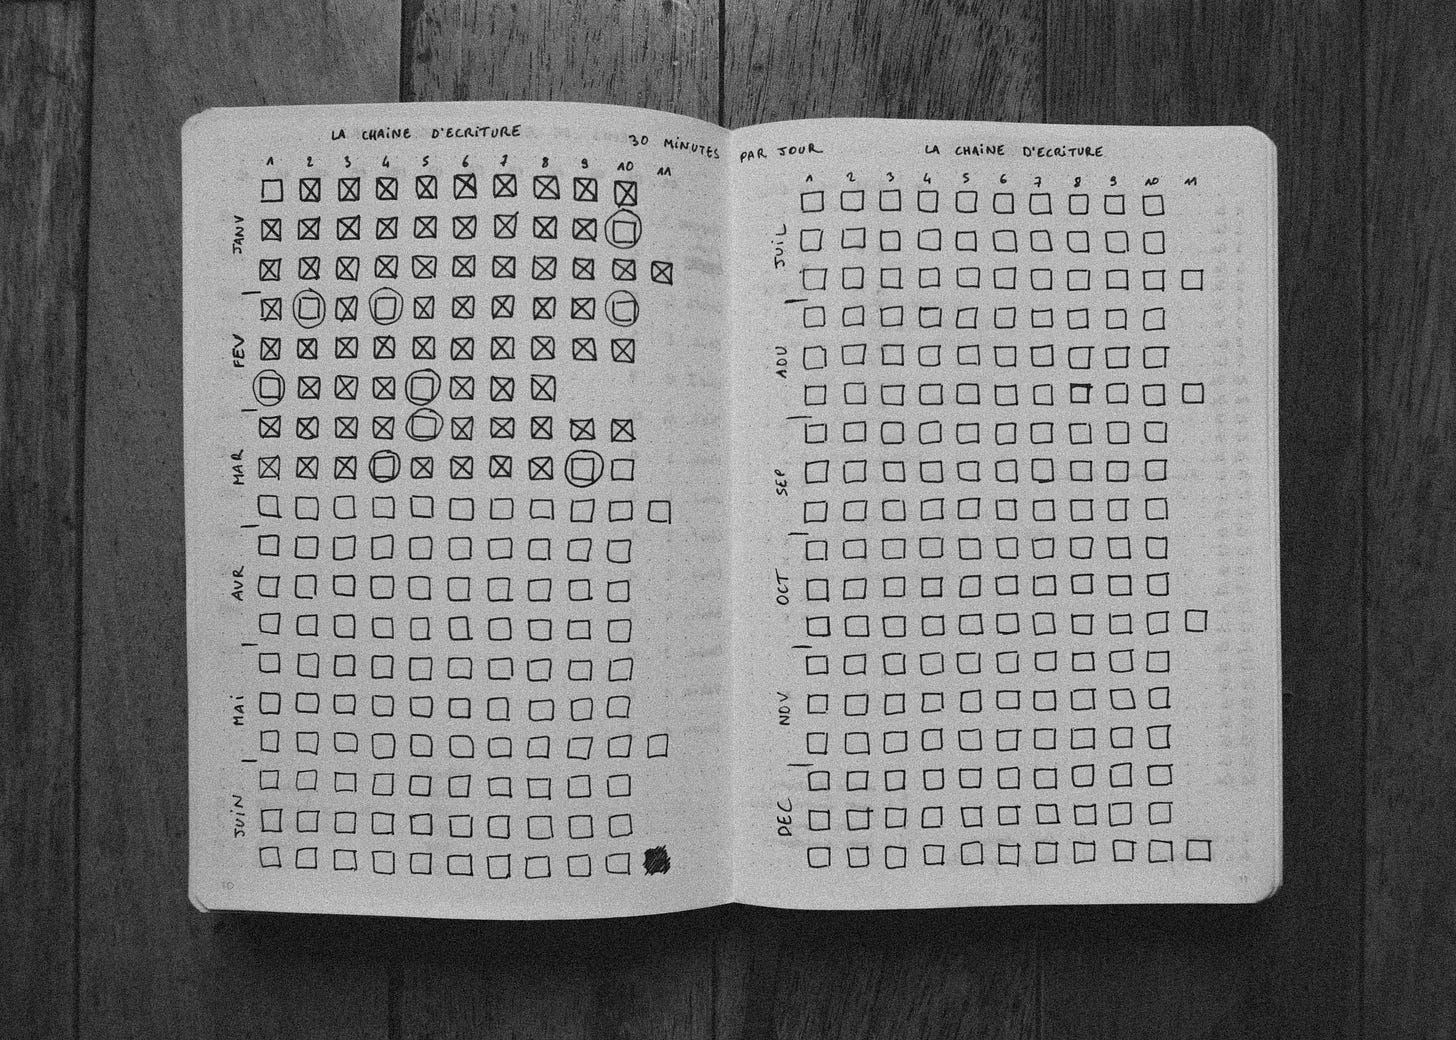 LA CHAiNE D'ECRiTURE
30 MiNUTES PAR JOUR
1 2 3 4 5 6 7 8 9 10 11
JANV
FEV
MAR
AVR
MAi
JUiN
10
LA CHAiNE D'ECRiTURE
1 2 3 4 5 6 7 8 9 10 11
JUiL
AOU
SEP
OCT
NOV
DEC